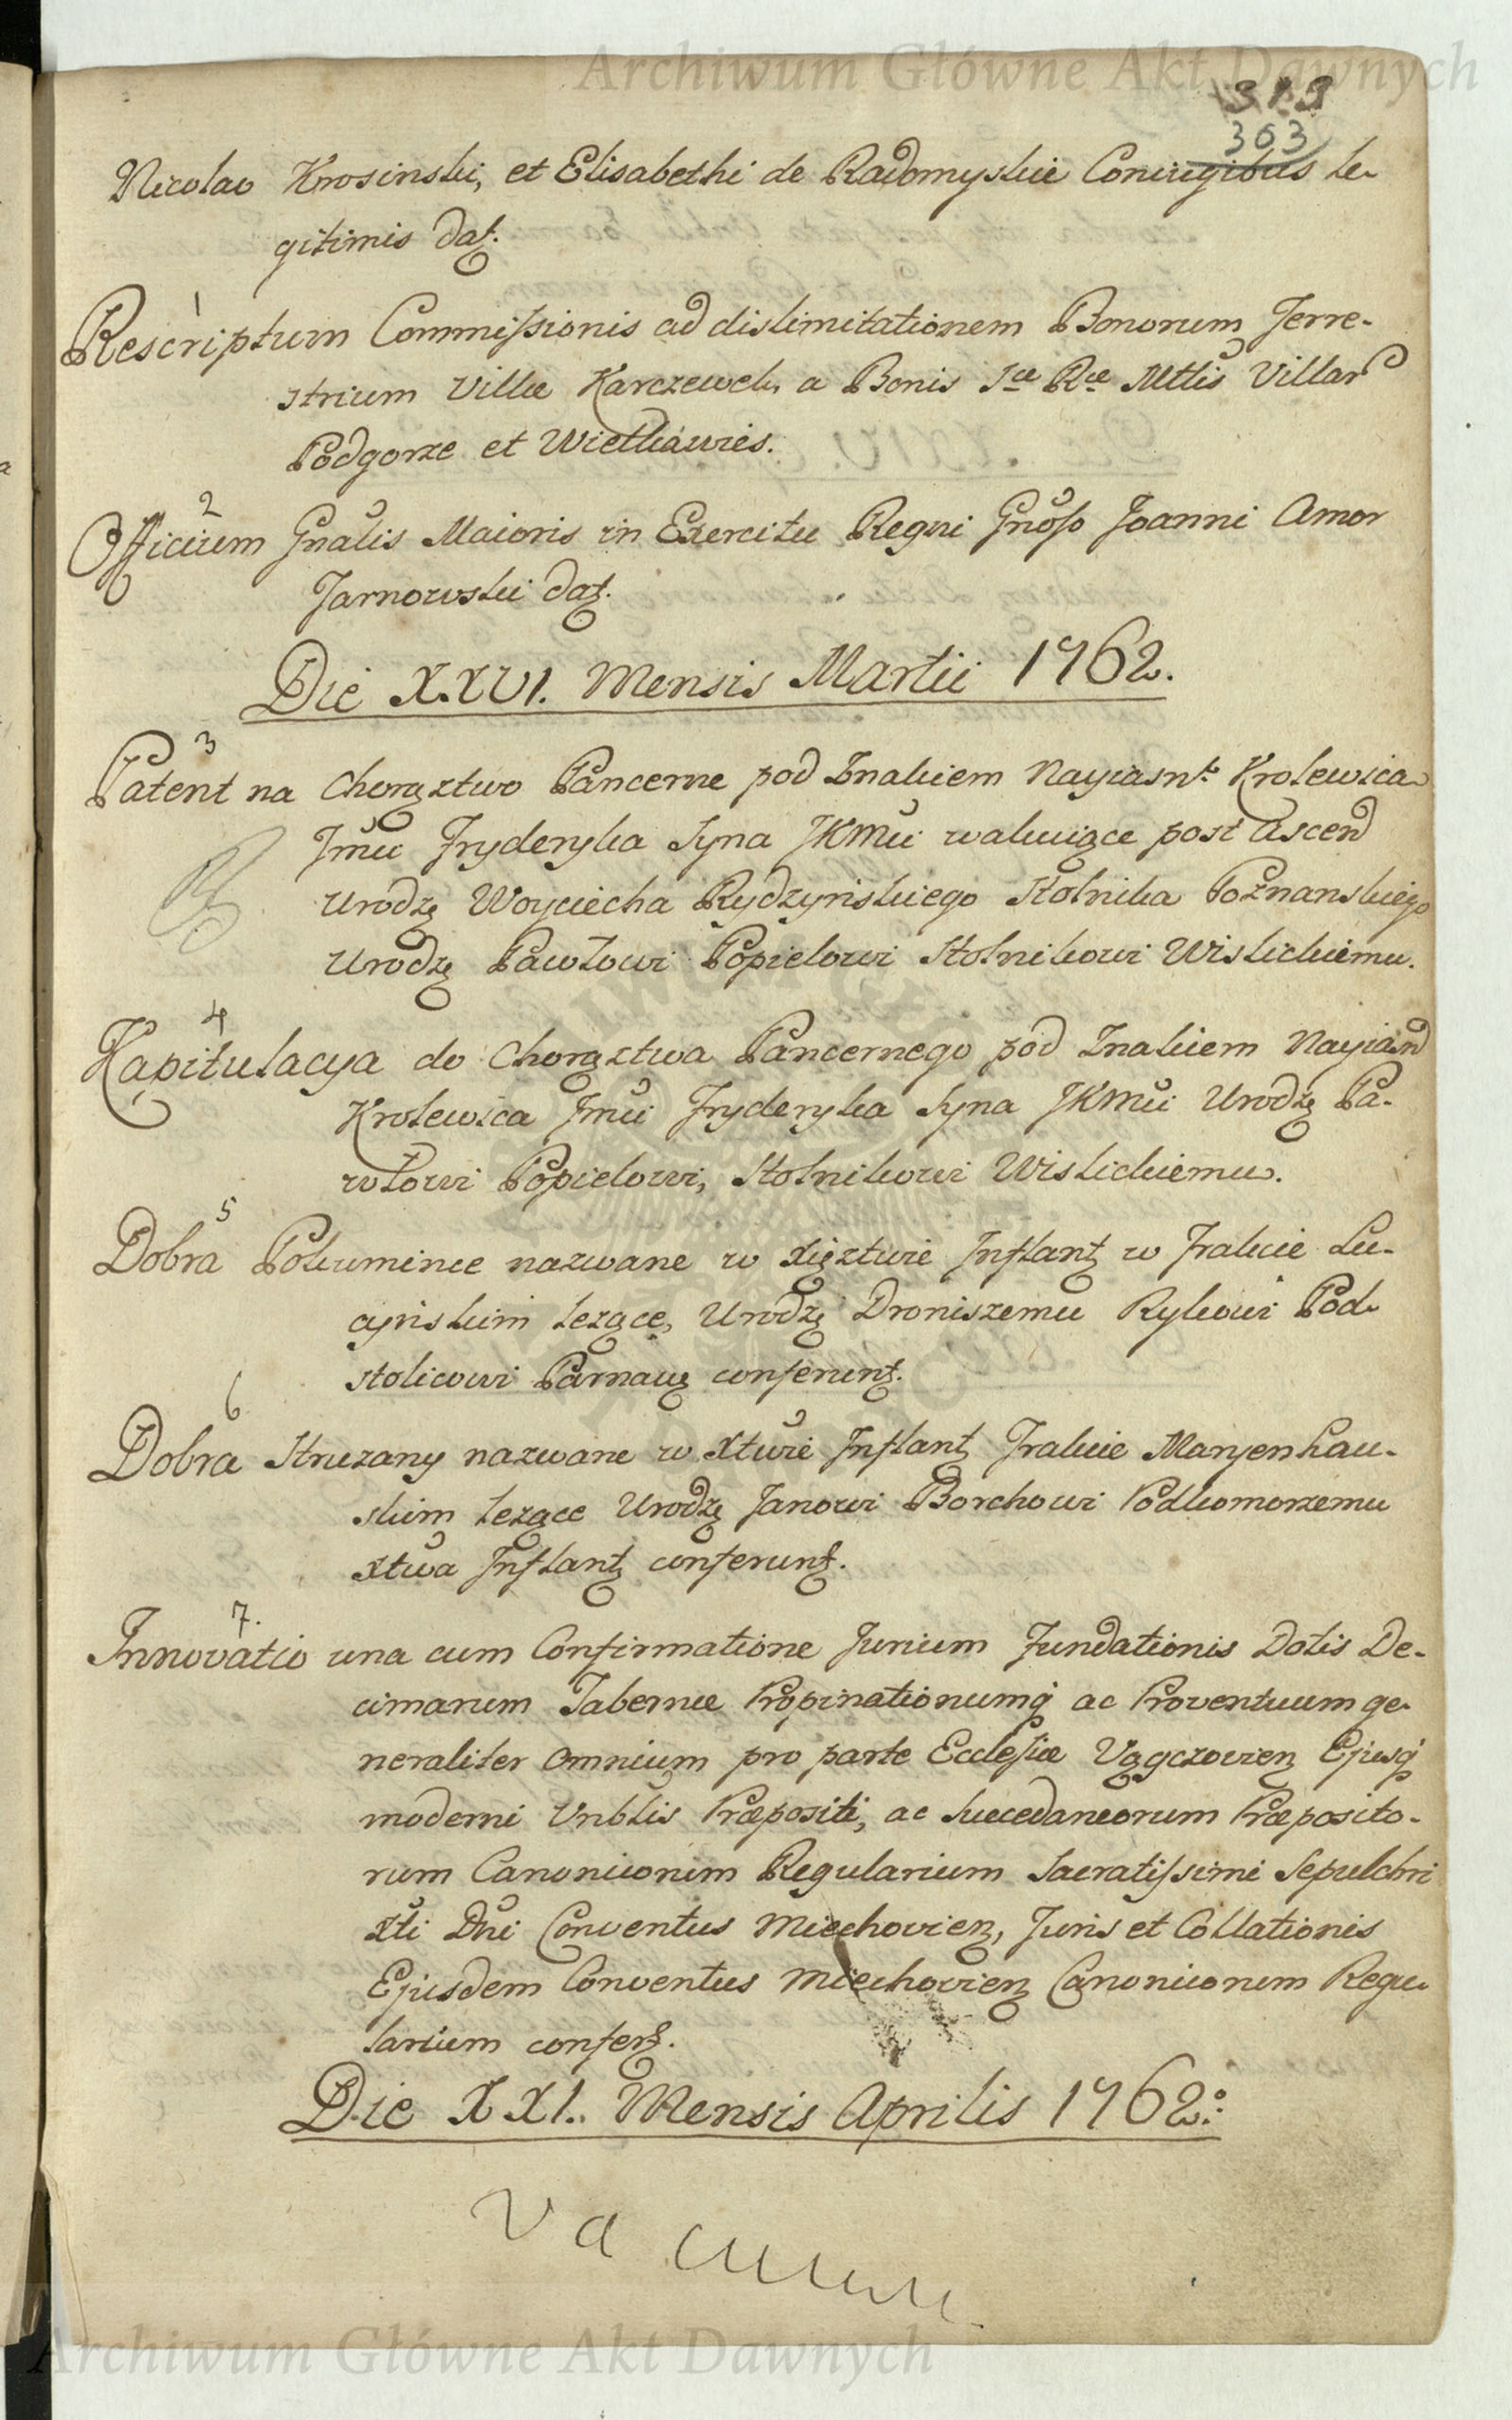 Archiwum Główne Akt Dawnych
313
303
Nicolao Krosinski, et Elisabethi de Radomyskie Coniugibus le-
gitimis dat.
1
Rescriptum Commissionis ad dislimitationem Bonorum Terre-
strium Villæ Karczewek, a Bonis Sæ Ræ Mttis Villar
Podgorze et Wietkawies.
2
Officium Gnalis Maioris in Exercitu Regni Gnoso Joanni Amor
Tarnowski dat.
Die XXVI. Mensis Martii 1762.
3
Patent na Chorąztwo Pancerne pod Znakiem Nayiasn: Krolewica
Jmci Fryderyka Syna JKMci wakuiące post Ascend
Urodz Woyciecha Rydzynskiego Stolnika Poznanskiego
Urodz Pawłowi Popielowi Stolnikowi Wislickiemu.
4
Kapitulacya do Chorąztwa Pancernego pod Znakiem Nayiasn
Krolewica Jmci Fryderyka Syna JKMci Urodz Pa-
włowi Popielowi, Stolnikowi Wislickiemu.
5
Dobra Pokumince nazwane w Xięztwie Inflant w Trakcie Lu-
cynskim lezące, Urodz Droniszemu Rykowi Pod-
stolicowi Parnaw conferunt.
6
Dobra Struzany nazwane w Xtwie Inflant Trakcie Maryenhau-
skim lezące Urodz Janowi Borchowi Podkomorzemu
Xtwa Inflant conferunt.
7.
Innovatio una cum Confirmatione Jurium Fundationis Dotis De-
cimarum Tabernæ Propinationumq ac Proventuum ge-
neraliter omnium pro parte Ecclesiæ Vągczovien Ejusq
moderni Vnblis Præpositi, ac Succedaneorum Præposito-
rum Canonicorum Regularium Sacratissimi Sepulchri
Xti Dni Conventus Miechovien, Juris et Collationis
Ejusdem Conventus Miechovien Canonicorum Regu-
larium confert.
Die XXI. Mensis Aprilis 1762:
Vacuum
Archiwum Główne Akt Dawnych